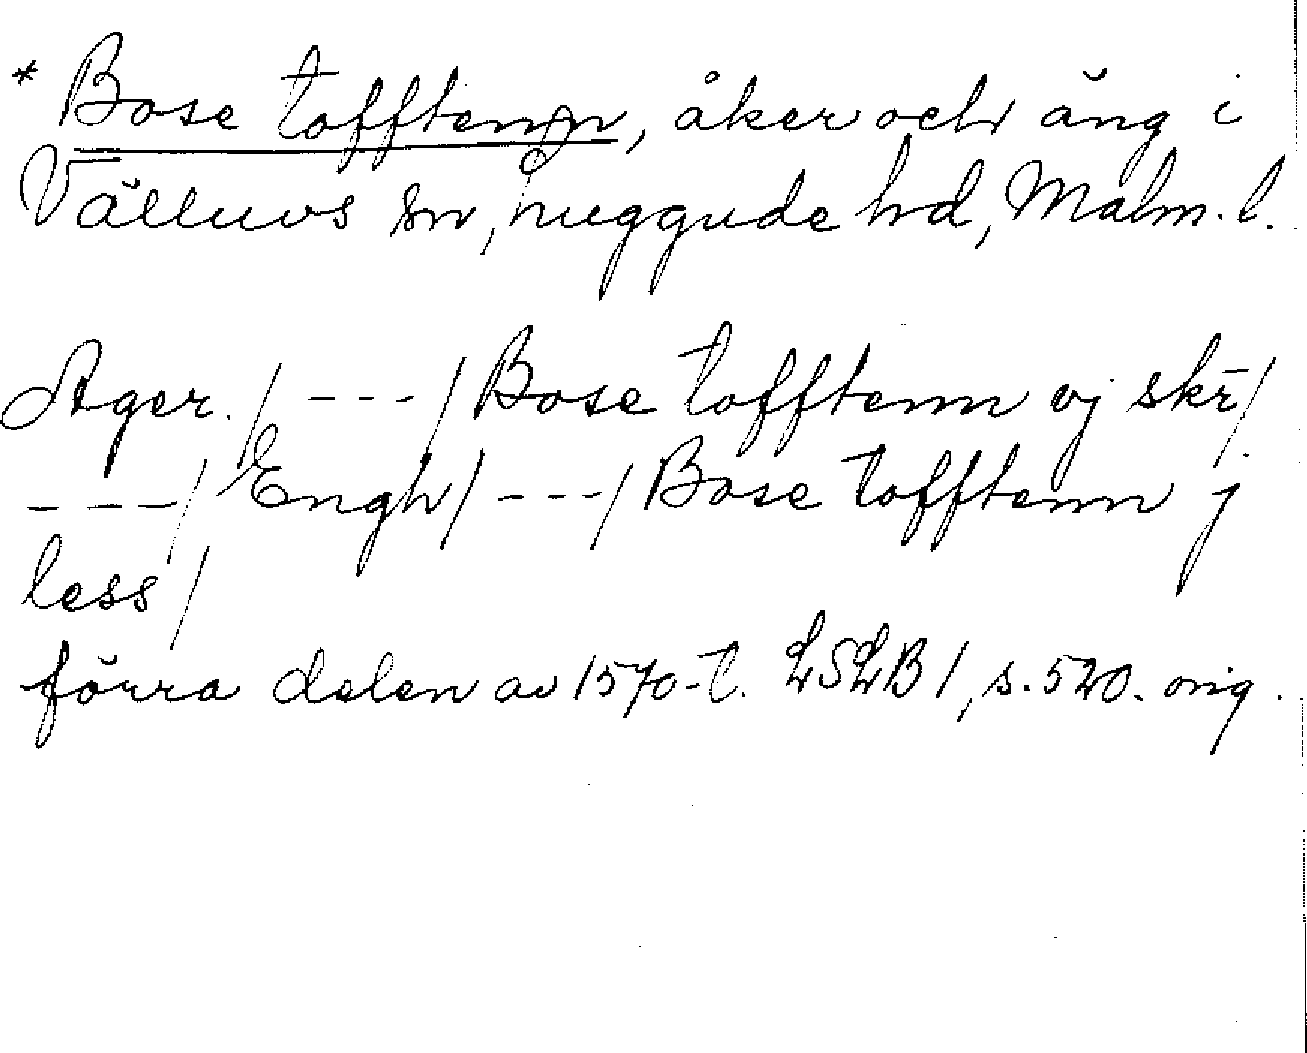 * Bose tofftenn, åker och äng i
Välluvs sn, Luggude hd, Malm. l.
Ager. / --- / Bose tofftenn vj skr /
--- / Engh / --- / Bose tofftenn j
less /
förra delen av 1570-t. LSLB 1, s. 520. orig.